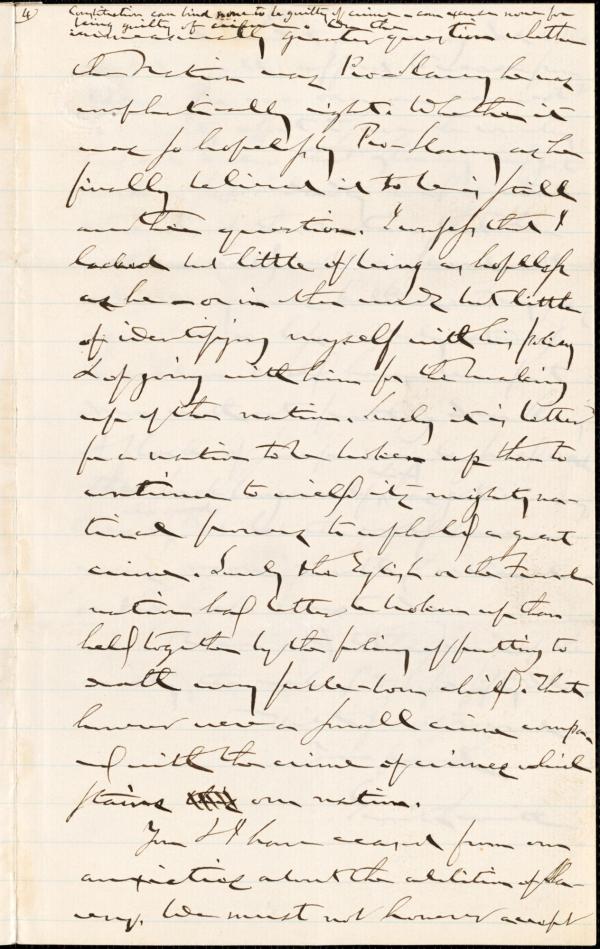 4)
Constitution can bind none to be guilty of crime - can excuse none for
being guilty of crime. On the
immeasurably greater question whether
the Nation was Pro-Slavery he was
emphatically right. Whether it
was so hopelessly Pro-Slavery as he
finally believed it to be is still
another question. I confess that I
lacked but little of being as hopeless
as he - or in other words but little
of identifying myself with his policy
& of going with him for the breaking
up of the nation. Surely it is better
for a nation to be broken up than to
continue to wield its mighty na-
tional powers to uphold a great
crime. Surely the English or the French
nation had better be broken up than
held together by the policy of putting to
death every feeble-born child. That
however were a small crime compar-
ed with the crime of crimes which
stains our nation.
You & I have ceased from our
anxieties about the abolition of Sla-
very. We must not however accept